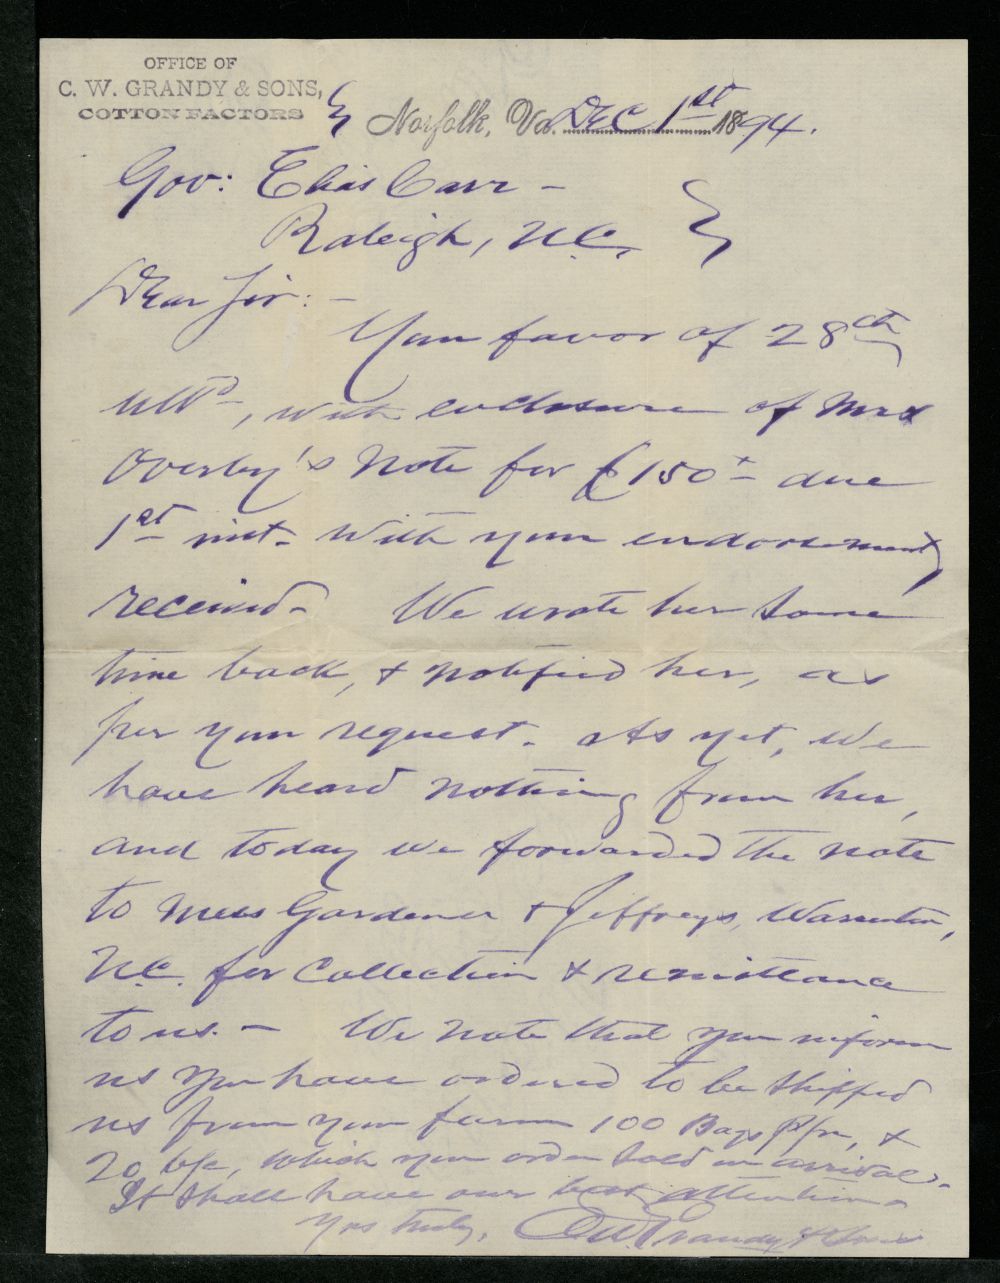 OFFICE OF
C. W. GRANDY & SONS,
COTTON FACTORS
Norfolk, Va. Dec 1st 1894.
Gov: Elias Carr -
Raleigh, N.C.
Dear Sir: -
Your favor of 28th
ulto, with enclosure of Mrs
Overby's Note for £150 due
1st inst. with your endorsement,
received - We wrote her some
time back, & notified her, as
per your request. As yet, we
have heard nothing from her,
and today we forwarded the note
to Mess Gardener & Jeffreys, Warrenton,
N.C. for Collection & remittance
to us. - We note that you inform
us you have ordered to be shipped
us from your farm 100 Bags &
20 b/c, which you order sold on arrival.
It shall have our best attention.
Yrs truly, C.W. Grandy & Sons